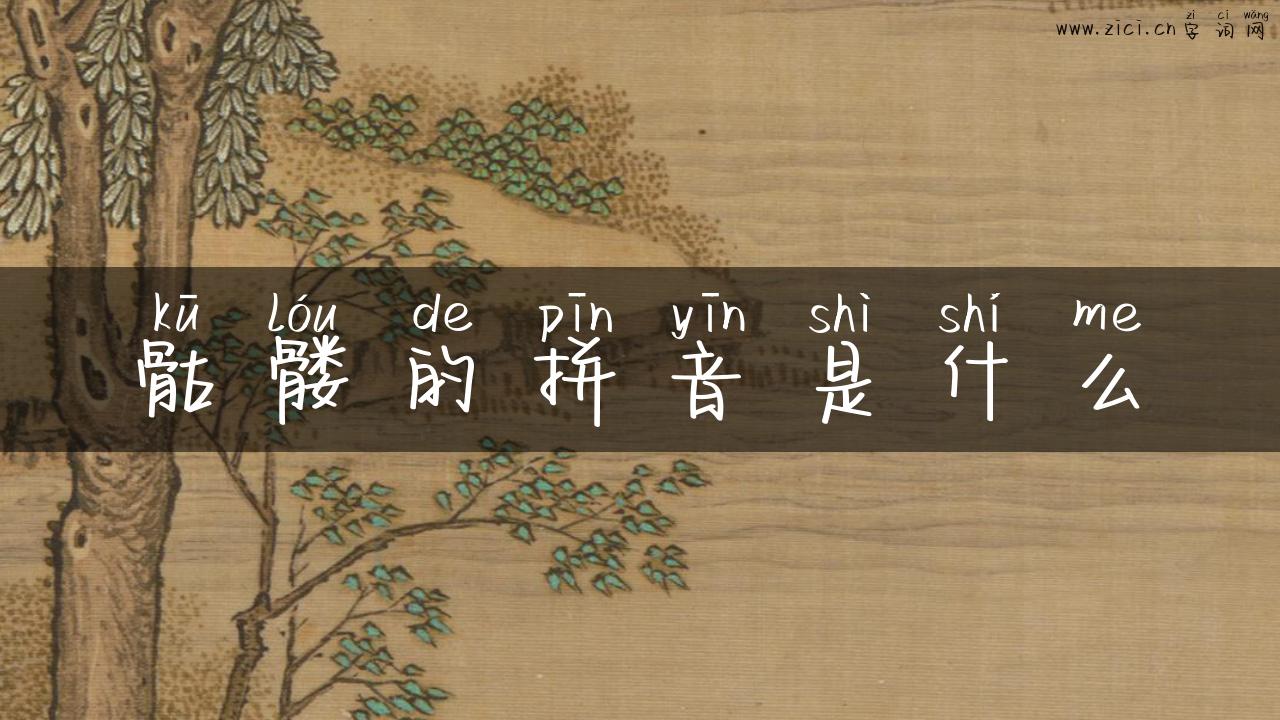 zì cí wǎng
www.zici.cn 字词网
kū lóu de pīn yīn shì shí me
骷髅的拼音是什么